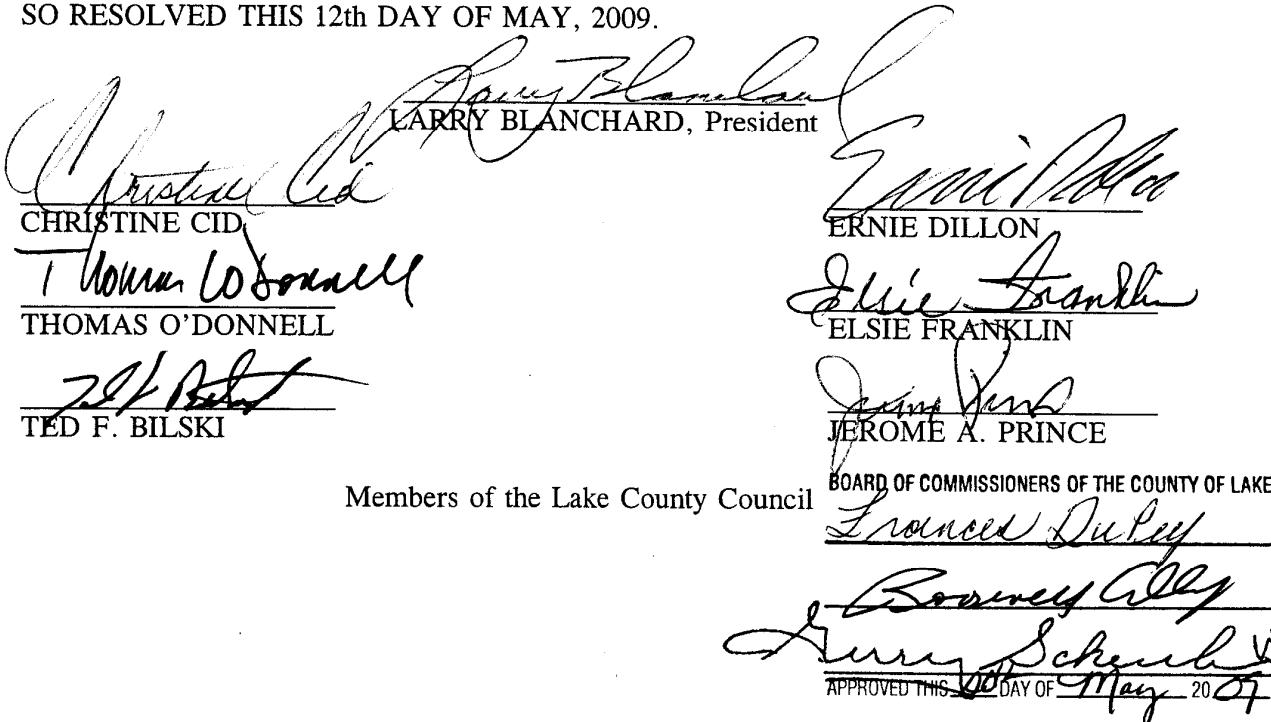 SO RESOLVED THIS 12th DAY OF MAY, 2009.
Larry Blanchard
LARRY BLANCHARD, President
Christine Cid
CHRISTINE CID
Ernie Dillon
ERNIE DILLON
Thomas O'Donnell
THOMAS O'DONNELL
Elsie Franklin
ELSIE FRANKLIN
Ted F. Bilski
TED F. BILSKI
Jerome Prince
JEROME A. PRINCE
Members of the Lake County Council
BOARD OF COMMISSIONERS OF THE COUNTY OF LAKE
Frances DuPey
Roosevelt Allen
Gerry Scheub
APPROVED THIS 20th DAY OF May 2009